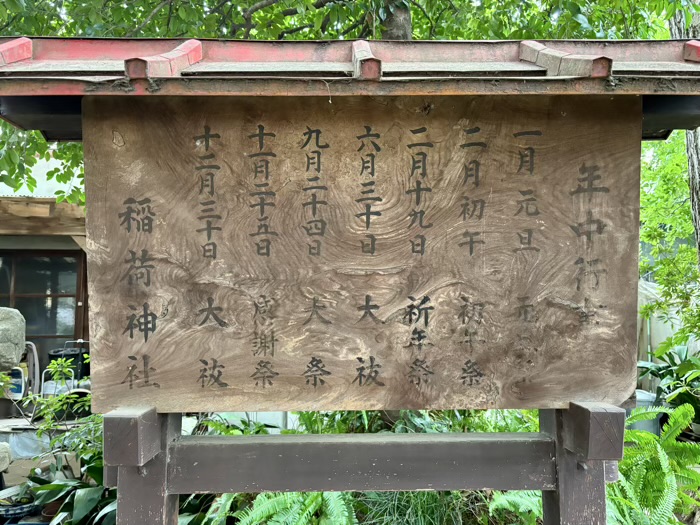 年中行事
一月元旦 元旦祭
二月初午 初午祭
二月十九日 祈年祭
六月三十日 大祓
九月二十四日 大祭
十一月二十五日 感謝祭
十二月三十日 大祓
稲荷神社